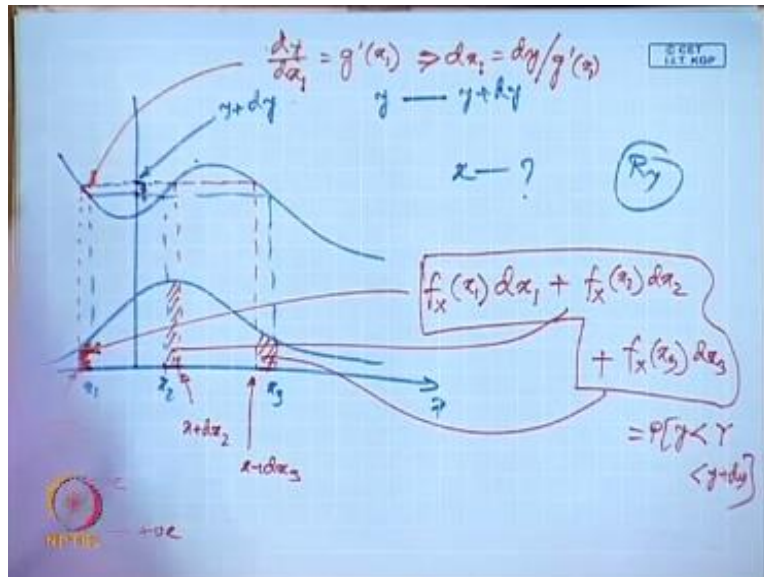 dy/dx₁ = g'(x₁) ⇒ dx₁ = dy/g'(x₁)
© CET
I.I.T. KGP
y+dy
y — y+dy
x — ?
Ry
fₓ(x₁) dx₁ + fₓ(x₂) dx₂
+ fₓ(x₃) dx₃
= P[y < Y
< y+dy]
x₁ x₂ x₃ x
x+dx₂
x+dx₃
NPTEL
+ve